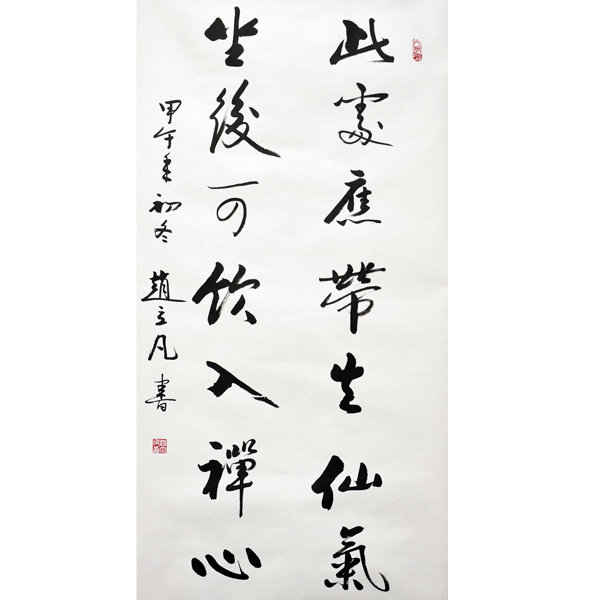 此處應帶生仙氣
坐後可飲入禪心
甲午年初冬 趙立凡書